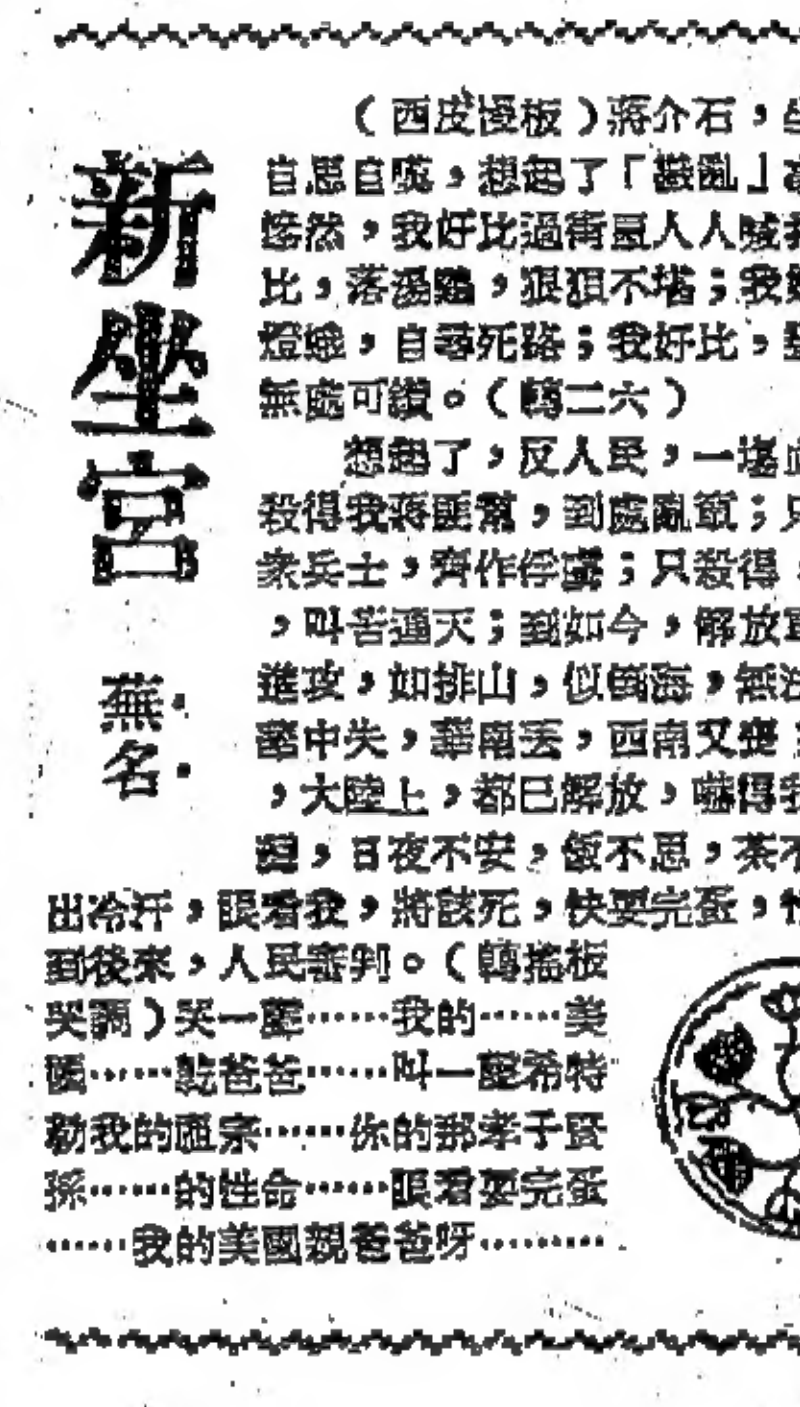 新坐宮
蕪名
(西皮慢板)蔣介石,坐
自思自嘆,想起了「戡亂」
慘然,我好比過街鼠人人喊
比,落湯雞,狼狽不堪;我好
燈蛾,自尋死路;我好比,
無處可鑽。(轉二六)
想起了,反人民,一場血
殺得我蔣匪幫,到處亂竄;只
眾兵士,齊作俘虜;只殺得,
,叫苦連天;到如今,解放軍
進攻,如排山,似倒海,無法
中失,華南丟,西南又喪
,大陸上,都已解放,嚇得我
,日夜不安,飯不思,茶不
出冷汗,眼看我,將該死,快要完蛋,
到後來,人民審判。(轉搖板
哭調)哭一聲……我的……美
國……乾爸爸……叫一聲希特
勒我的祖宗……你的那孝子賢
孫……的性命……眼看要完蛋
……我的美國親爸爸呀………